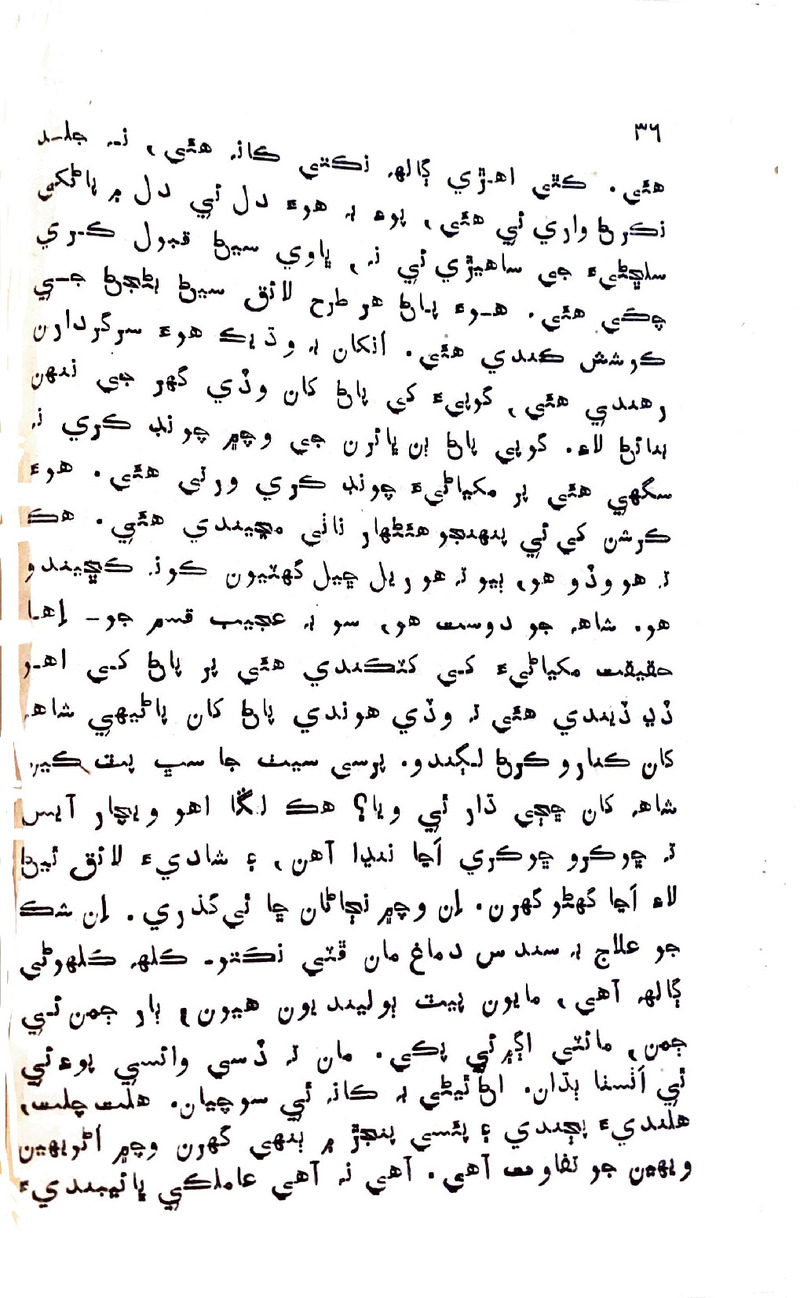 ٣٦
هئي. ڪٿي اهڙي ڳالهہ نڪتي ڪانہ هئي، نہ جلد
نڪرڻ واري ئي هئي، پوءِ بہ هوءَ دل ئي دل ۾ پاڻکي
ساڃڻيءَ جي ساهيڙي ئي نہ، ڀاوي سيڻ قبول ڪري
چڪي هئي. هوءَ پاڻ هر طرح لائق سيڻ بڻجڻ جي
ڪوشش ڪندي هئي. اُنکان بہ وڌيڪ هوءَ سرگردان
رهندي هئي، گوپيءَ کي پاڻ کان وڏي گهر جي ننهن
بنائڻ لاءِ. گوپي پاڻ ٻن ڀائرن جي وچ۾ چونڊ ڪري نہ
سگهي هئي پر مکياڻيءَ چونڊ ڪري ورتي هئي. هوءَ
ڪرشن کي ئي پنهنجو هٿڻهار ناٺي مڃيندي هئي. هڪ
تہ هو وڏو هو، ٻيو تہ هو ريل ڇيل گهٽيون ڪونہ ڪڇيندو
هو. شاهہ جو دوست هو، سو بہ عجيب قسم جو۔ اِها
حقيقت مکياڻيءَ کي کٽڪندي هئي پر پاڻ کي اهو
ڏڍ ڏيندي هئي تہ وڏي هوندي پاڻ کان پاڻيهي شاهہ
کان ڪنارو ڪرڻ لڳندو. پرسي سيٺ جا سڀ پٽ ڪيئن
شاهہ کان ڇڄي ڌار ٿي ويا؟ هڪ لڱا اهو ويچار آيس
تہ ڇوڪرو ڇوڪري اڃا ننڍا آهن، ۽ شاديءَ لائق ٿيڻ
لاءِ اڃا گهڻو گهرن. اِن وچ۾ نڄاڻان ڇا ٿي گذري. اِن شڪ
جو علاج بہ سندس دماغ مان ڦٽي نڪتو۔ ڪلهہ ڪلهوڻي
ڳالهہ آهي، مايون پيٽ ٻولينديون هيون، ٻار ڄمن ئي
ڄمن، مائٽي اڳ۾ ئي پڪي. مان تہ ڏسي وائسي پوءِ ٿي
ٿي اُنسنا ٻڌان. اڻٿيڻي بہ ڪانہ ٿي سوچيان. هلت چلت،
هلنديءَ پڄندي ۽ پئسي پنجڙ ۾ ٻنهي گهرن وچ۾ اُڻويهين
ويهين جو تفاوت آهي. آهي نہ آهي عاملڪي ڀائيبنديءَ